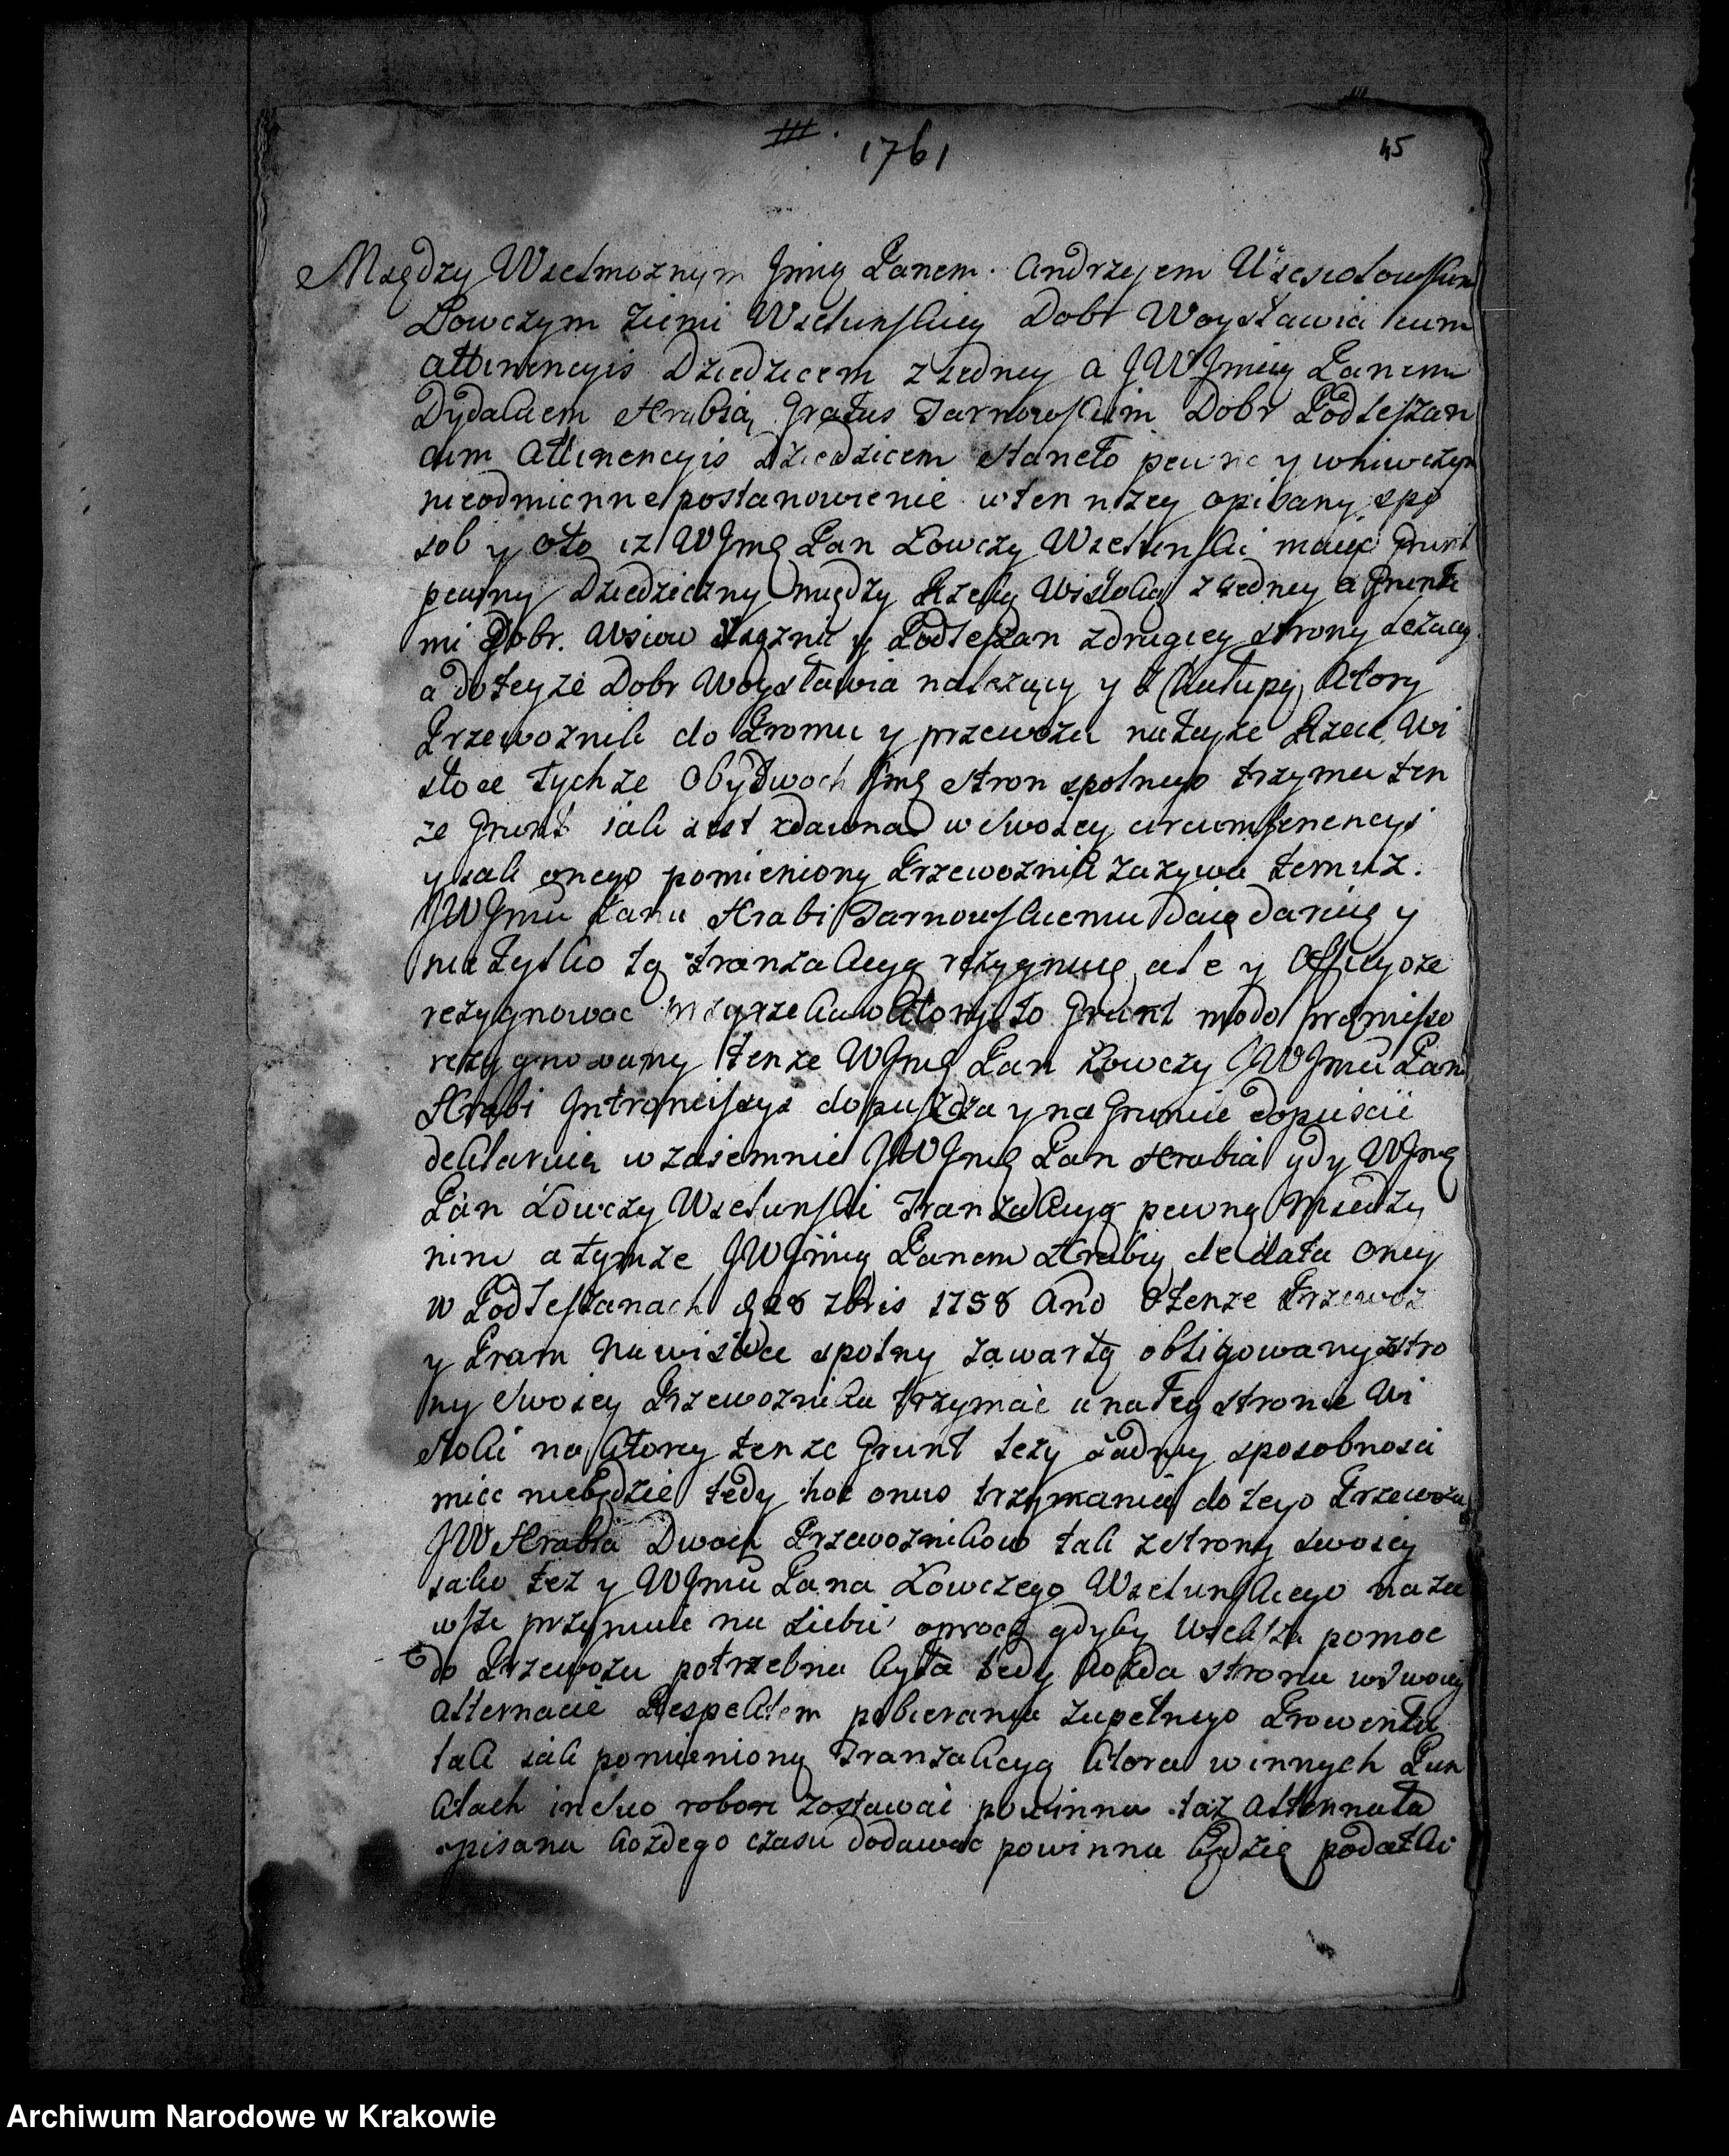 III.
1761
45
Między Wielmoznym Jmcią Panem Andrzejem Wiesiołowskim
Łowczym Ziemi Wieluńskiey Dobr Woysławia cum
attinencyis Dziedzicem z iedney a JWJmcią Panem
Dydakiem Hrabią Gratus Tarnowskim Dobr Podleszan
cum Attinencyis Dziedzicem staneło pewne y wniwczym
nieodmienne postanowienie w ten nizey opisany spo
sob y oto iz WJmc Pan Łowczy Wieluński maiąc Grunt
pewny Dziedziczny między Rzeką Wisłoką z iedney a Grunta
mi Dobr Wsiow y Podleszan z drugiey strony leżący
a do teyze Dobr Woysławia należący y z Chałupą ktory
Przewoznik do Promu y przewozu na teyze Rzece Wi
słoce tychze Obydwoch Jmc stron spolnego trzyma ten
ze Grunt iak iest zdawna w swoiey circumferencyi
y iak onego pomieniony Przewoznik zazywa temuz
JWJmci Panu Hrabi Tarnowskiemu daie daruie y
nie tylko tą tranzakcyą rezygnuie ale y Officyose
rezygnowac przyrzeka ktory to Grunt modo praemisso
rezygnowany tenze WJmc Pan Łowczy JWJmci Panu
Hrabi Intromissyi dopuszcza y na Gruncie dopuscić
deklaruie wzaiemnie JWJmc Pan Hrabia gdy WJmc
Pan Łowczy Wieluński Tranzakcyą pewną Między
nim a tymze JWJmcią Panem Hrabią de data oney
w Podleszanach d 28 7bris 1758 Ano o tenze Przewoz
y Pram na Wisłoce spolny zawartą obligowany z stro
ny swoiey Przewoznika trzymać a na tey stronie Wi
słoki na ktorey tenze Grunt leży żadney sposobności
miec niebędzie tedy hoc onus trzymania do tego Przewozu
JW Hrabia Dwoch Przewoznikow tak z strony swoiey
iako tez y WJmci Pana Łowczego Wieluńskiego na za
wsze przyimuie na siebie oprocz gdyby wieksza pomoc
do Przewozu potrzebna była tedy kozda strona w swoiey
alternacie Respektem pobierania zupełnego Prowentu
tak iak pomieniona Tranzakcya ktora w innych Pun
ktach in suo robore zostawać powinna taz alternata
opisana kozdego czasu dodawac powinna będzie podatki
Archiwum Narodowe w Krakowie